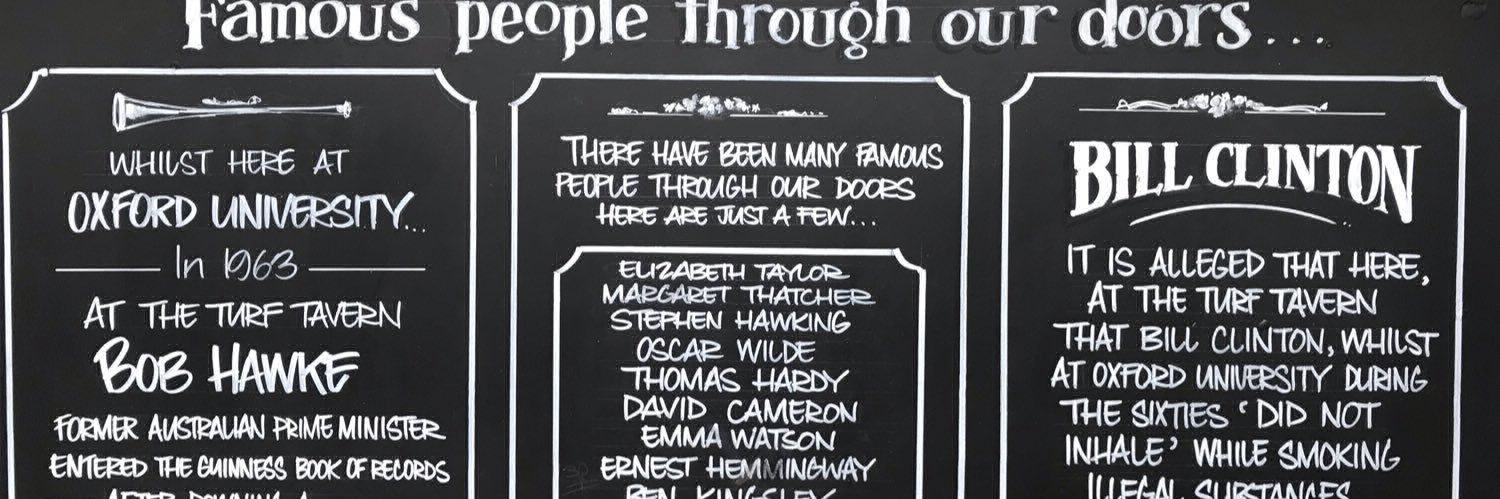 Famous people through our doors...
WHILST HERE AT
OXFORD UNIVERSITY...
In 1963
AT THE TURF TAVERN
BOB HAWKE
FORMER AUSTRALIAN PRIME MINISTER
ENTERED THE GUINNESS BOOK OF RECORDS
AFTER DOWNING A
THERE HAVE BEEN MANY FAMOUS
PEOPLE THROUGH OUR DOORS
HERE ARE JUST A FEW...
ELIZABETH TAYLOR
MARGARET THATCHER
STEPHEN HAWKING
OSCAR WILDE
THOMAS HARDY
DAVID CAMERON
EMMA WATSON
ERNEST HEMMINGWAY
BEN KINGSLEY
BILL CLINTON
IT IS ALLEGED THAT HERE,
AT THE TURF TAVERN
THAT BILL CLINTON, WHILST
AT OXFORD UNIVERSITY DURING
THE SIXTIES ‘DID NOT
INHALE’ WHILE SMOKING
ILLEGAL SUBSTANCES